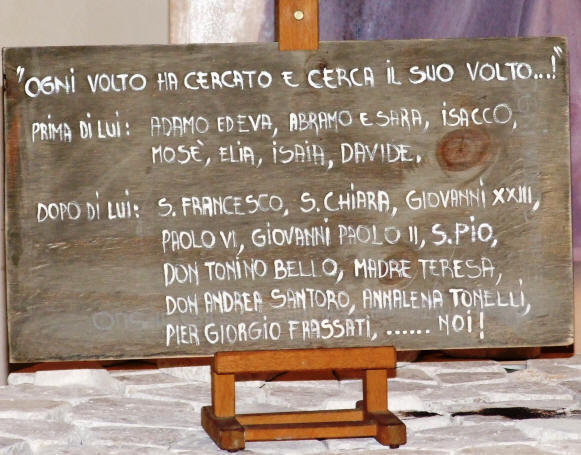 "OGNI VOLTO HA CERCATO E CERCA IL SUO VOLTO...!"
PRIMA DI LUI: ADAMO ED EVA, ABRAMO E SARA, ISACCO,
MOSÈ, ELIA, ISAIA, DAVIDE.
DOPO DI LUI: S. FRANCESCO, S. CHIARA, GIOVANNI XXIII,
PAOLO VI, GIOVANNI PAOLO II, S. PIO,
DON TONINO BELLO, MADRE TERESA,
DON ANDREA SANTORO, ANNALENA TONELLI,
PIER GIORGIO FRASSATI, ...... NOI!